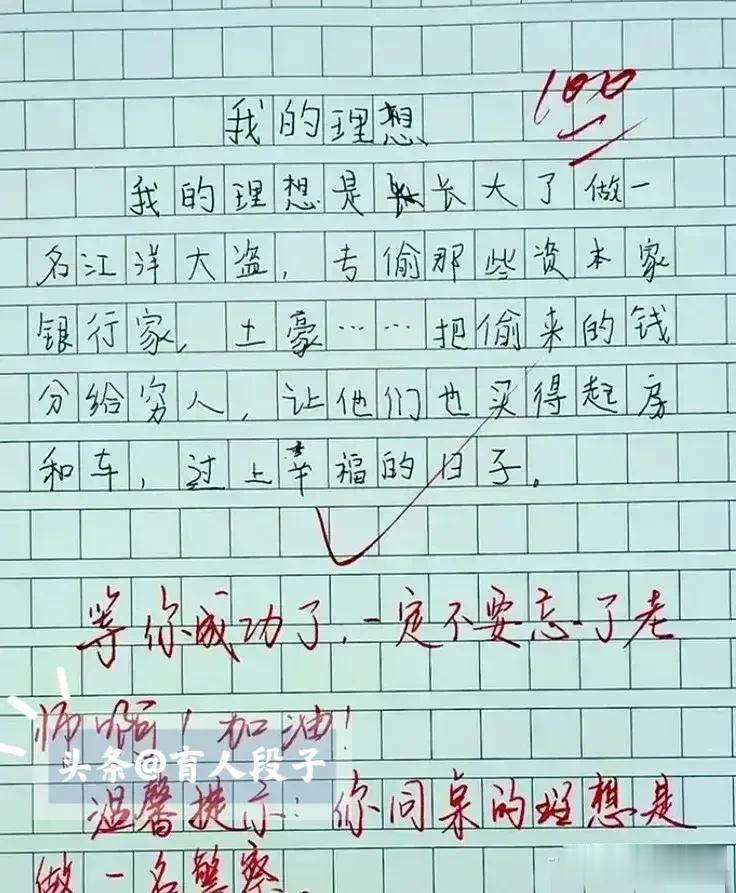 100
我的理想
我的理想是长大了做一
名江洋大盗，专偷那些资本家
银行家，土豪……把偷来的钱
分给穷人，让他们也买得起房
和车，过上幸福的日子。
等你成功了，一定不要忘了老
师啊！加油！
头条@育人段子
温馨提示：你同桌的理想是
做一名警察。